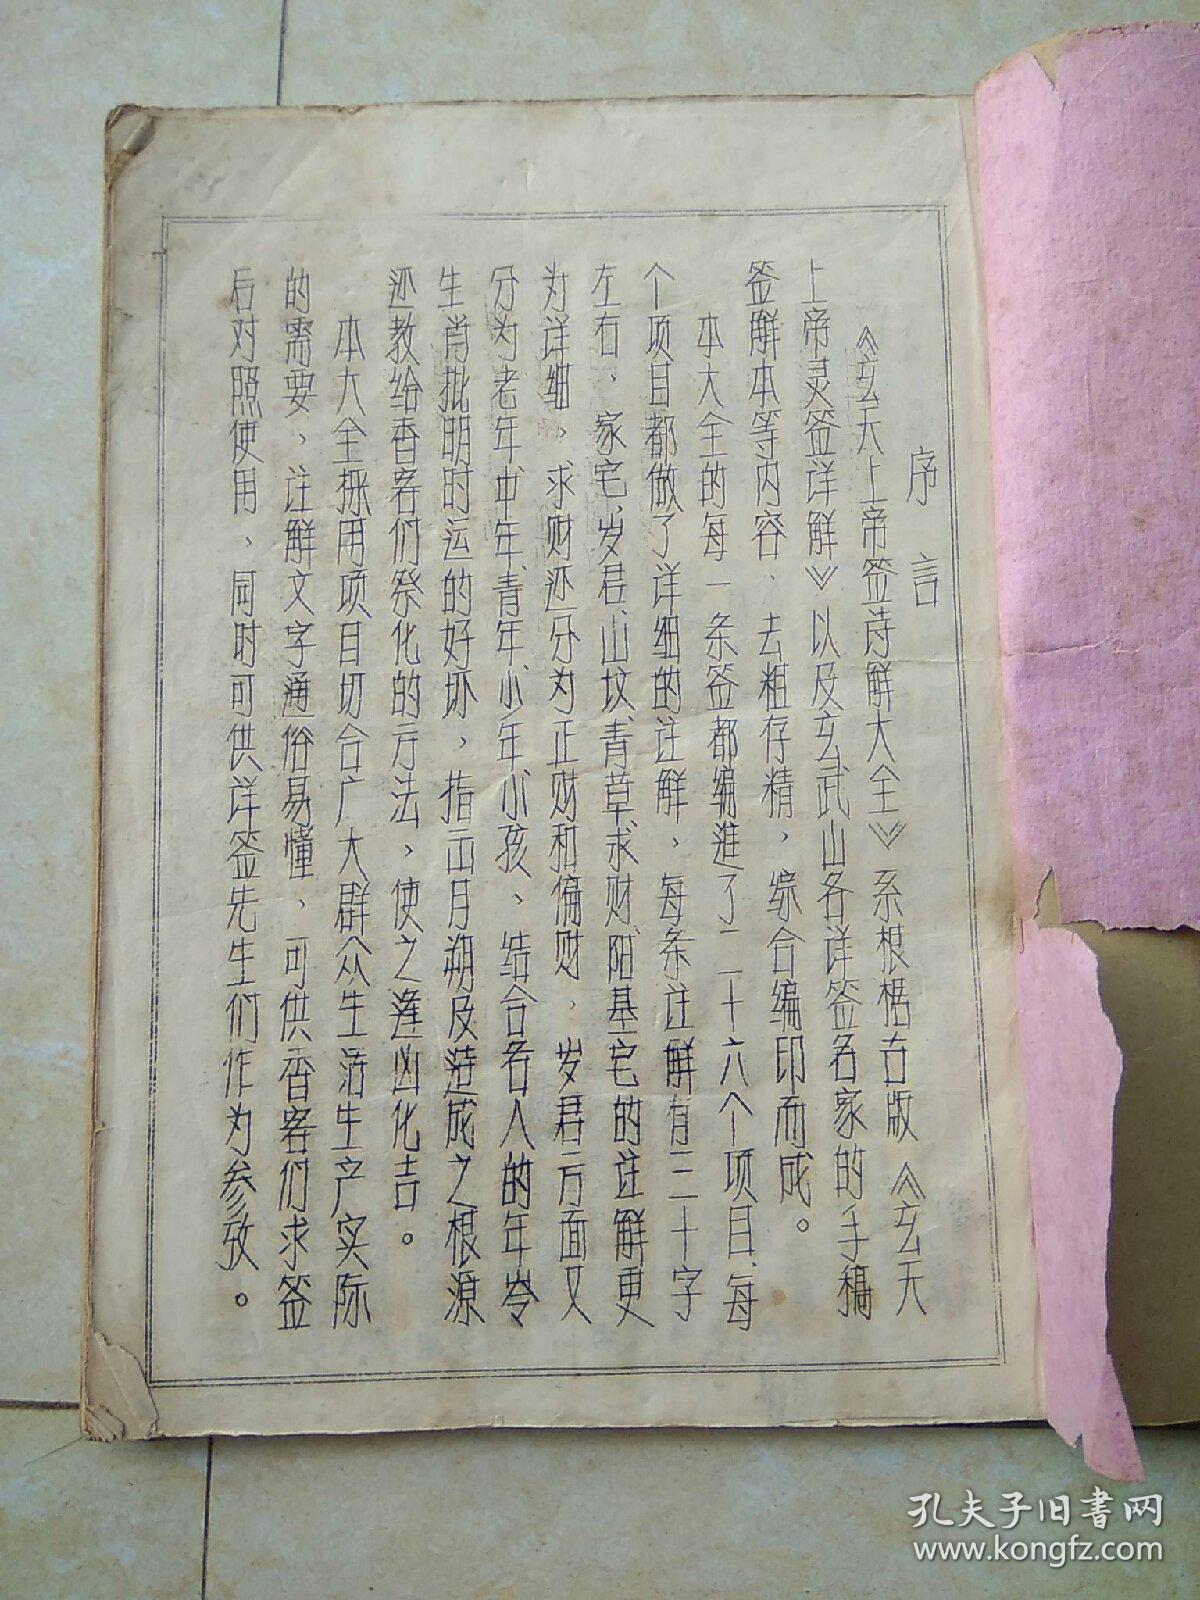 序言
《玄天上帝签诗解大全》系根据古版《玄天
上帝灵签详解》以及玄武山各详签名家的手稿
签解本等内容、去粗存精，综合编印而成。
本大全的每一条签都编进了二十六个项目、每
个项目都做了详细的注解，每条注解有三十字
左右，家宅、岁君、山坟、青草、求财、阳基宅的注解更
为详细，求财还分为正财和偏财，岁君方面又
分为老年、中年、青年、少年、小孩、结合各人的年岭
生肖批明时运的好坏，指出月朔及造成之根源
还教给香客们祭化的方法，使之逢凶化吉。
本大全採用项目切合广大群众生活生产实际
的需要，注解文字通俗易懂，可供香客们求签
后对照使用、同时可供详签先生们作为参攷。
孔夫子旧书网
www.kongfz.com